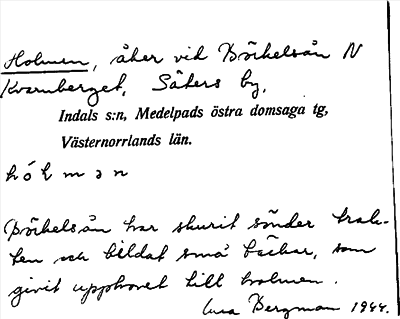 Holmen, åker vid Börkelsån N
Kvarnberget, Säters by,
Indals s:n, Medelpads östra domsaga tg,
Västernorrlands län.
hólmən
Börkelsån har skurit sönder trak-
ten och bildat små bäckar, som
givit upphovet till holmen.
Bergman 1944.